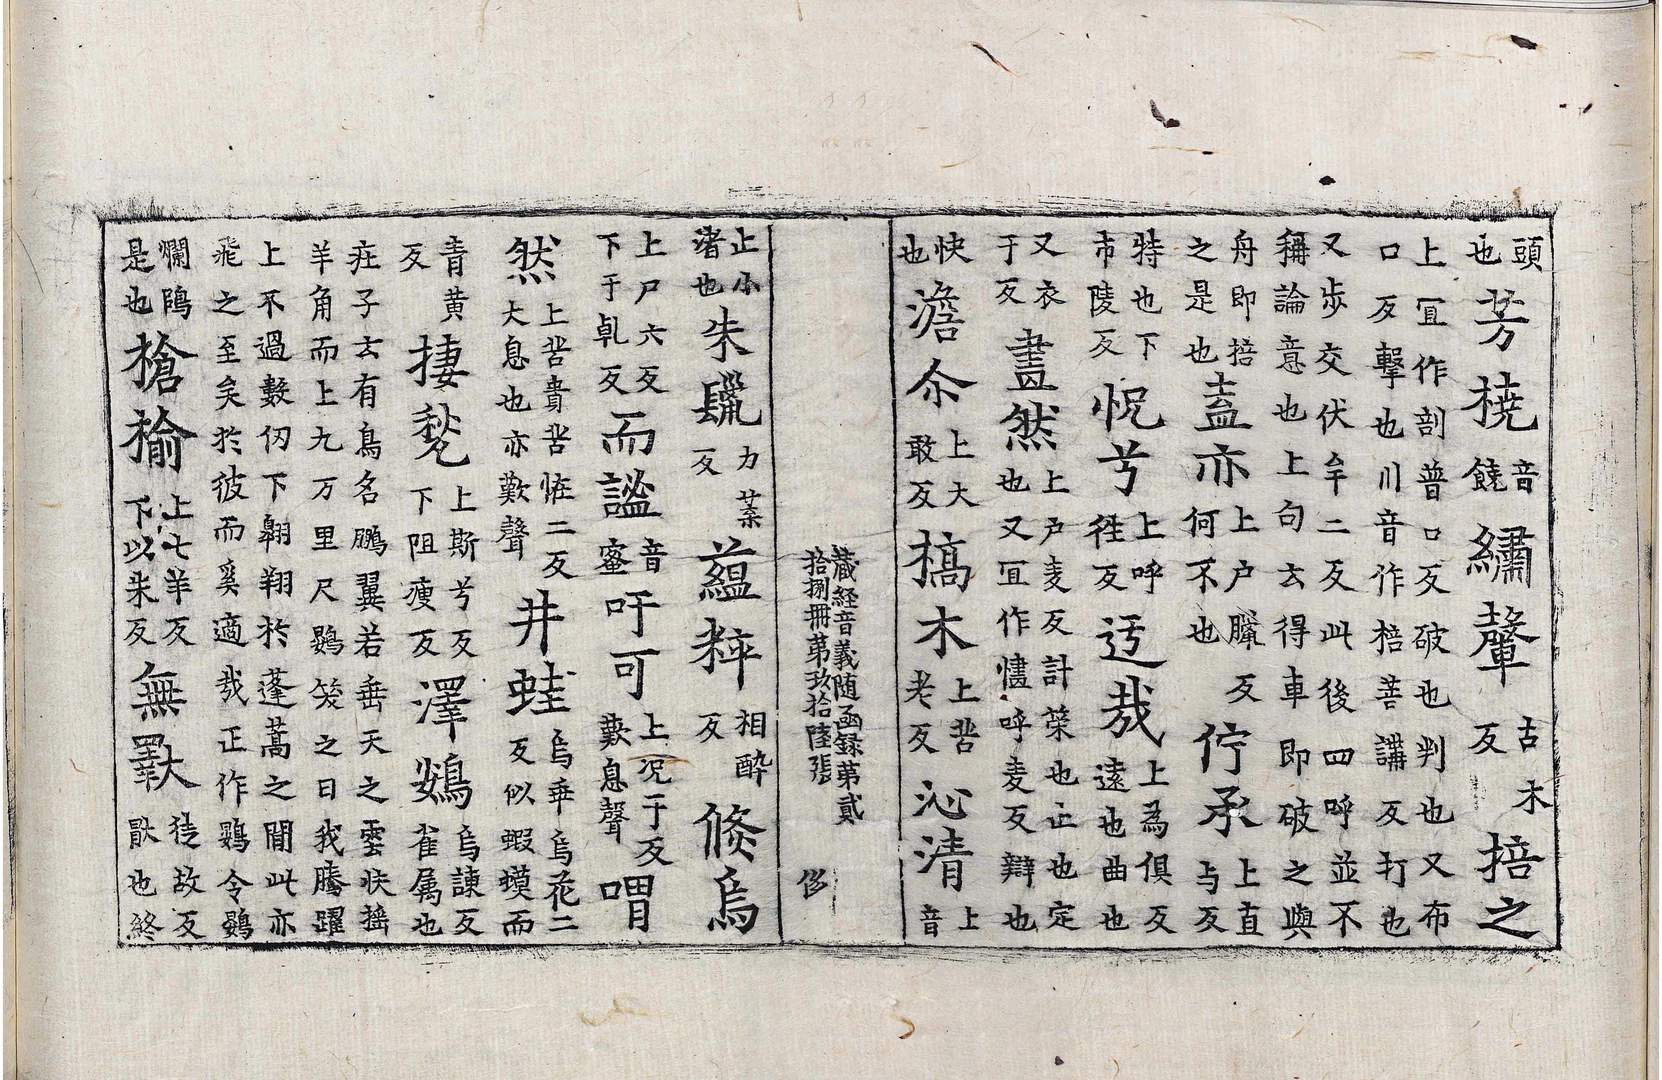 頭也芳橈音饒繡轂古木反掊之
上冝作剖普口反破也判也又布口反擊也川音作棓菩講反打也
又步交伏牟二反此後四呼並不稱論意也上句云得車即破之與
舟即掊之是也盍亦上户臈反何不也佇承上直与反
特也下市陵反怳兮上呼往反迃哉上為俱反遠也曲也
又衣于反畫然上户麦反計䇿也止也定也又冝作㦎呼麦反辯也
快也澹尒上大敢反槁木上苦老反沁清上音
藏経音義随函録第貳拾捌冊第玖拾陸張 侈
止小渚也朱鬛力葉反蘊粹相醉反倏烏
上尸六反下于乹反而謐音蜜吁可上况于反歎息聲喟
然上苦貴苦恠二反大息也亦歎聲井蛙烏乖烏花二反似蝦蟆而
青黄反捿甃上斯兮反下阻瘦反澤鷃烏諌反雀属也
疰子云有鳥名鵬翼若垂天之雲快搖羊角而上九万里尺鷃笑之曰我騰躍
上不過數仞下翱翔於蓬蒿之間此亦飛之至矣於彼而奚適哉正作鷃令鷃
爛鴟是也槍榆上七羊反下以朱反無斁徒故反猒也終